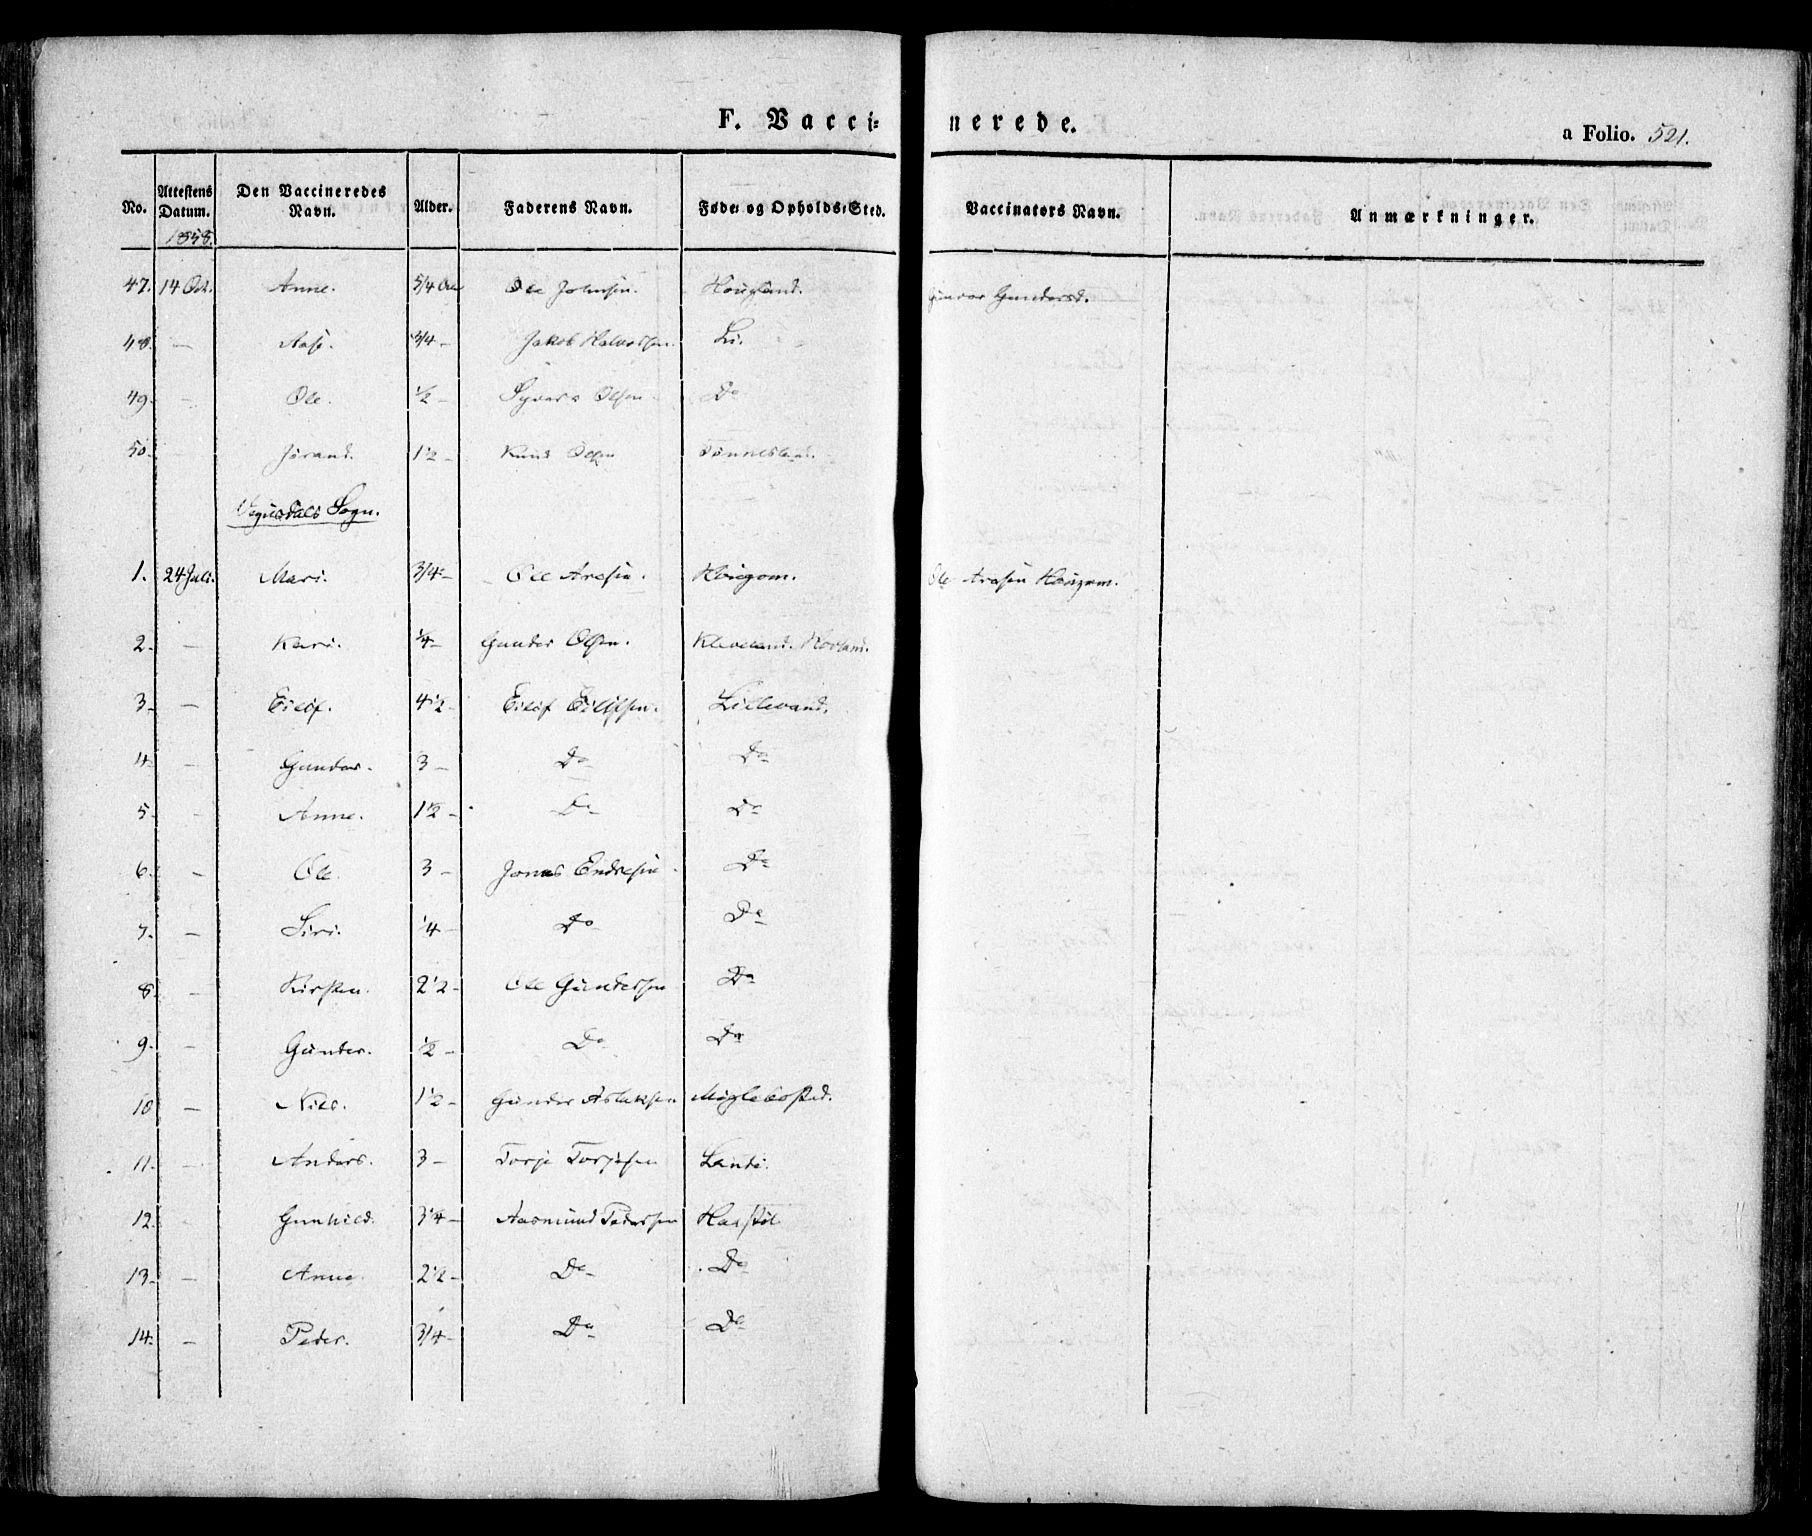 F. Vaccinerede.
a Folio. 521.
No. Attestens Datum. Den Vaccineredes Navn. Alder. Faderens Navn. Føde- og Opholds-Sted. Vaccinators Navn. Anmærkninger.
1858.
47. 14 Oct. Anne. 5/4 Ole Johnsen. Hougland. Gunvor Gundersd.
48. — Aase. 3/4 — Jakob Halvorsen. Li.
49. — Ole. 1/2 — Syvert Olsen. Do
50. — Jorand. 1 1/2 — Knud Olsen Tonnesland.
Vegusdals Sogn.
1. 24 Juli. Mari. 3/4 — Ole Aresen. Hougom. Ole Aresen Hougom.
2. — Kari. 1/4 — Gunder Olsen. Kleveland. Hovland.
3. — Eilef. 4 1/2 — Eilef Eilefsen. Lillevand.
4. — Gunder. 3 — Do Do
5. — Anne. 1 1/2 — Do Do
6. — Ole. 3 — Jonas Endresen. Do
7. — Siri. 1/4 — Do Do
8. — Kirsten. 2 1/2 — Ole Gundersen Do
9. — Gunder. 1/2 — Do Do
10 — Niels. 1 1/2 — Gunder Aslaksen Møglebosted.
11. — Anders. 3 — Torje Torjesen Lande.
12. — Gunhild. 3 1/4 — Aasmund Pedersen Haastøl
13. — Anne. 2 1/2 — Do Do
14. — Peder. 3/4 — Do Do